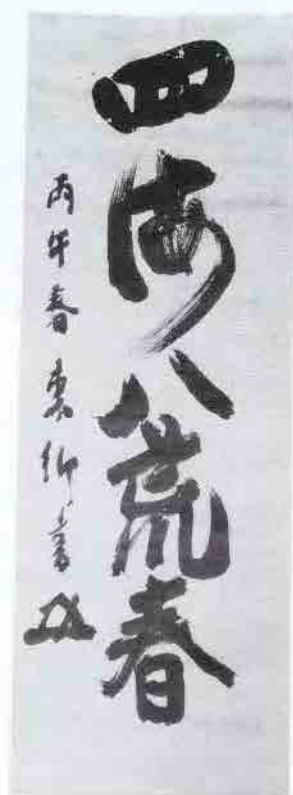 四海八荒春
丙午春 書